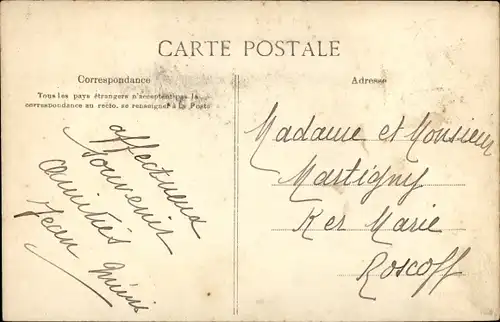 CARTE POSTALE
Correspondance
Tous les pays étrangers n'acceptent pas la
correspondance au recto, se renseigner à la Poste
affectueux
souvenir
amitiés
Jean
Adresse
Madame et Monsieur
Martigny
Ker Marie
Roscoff